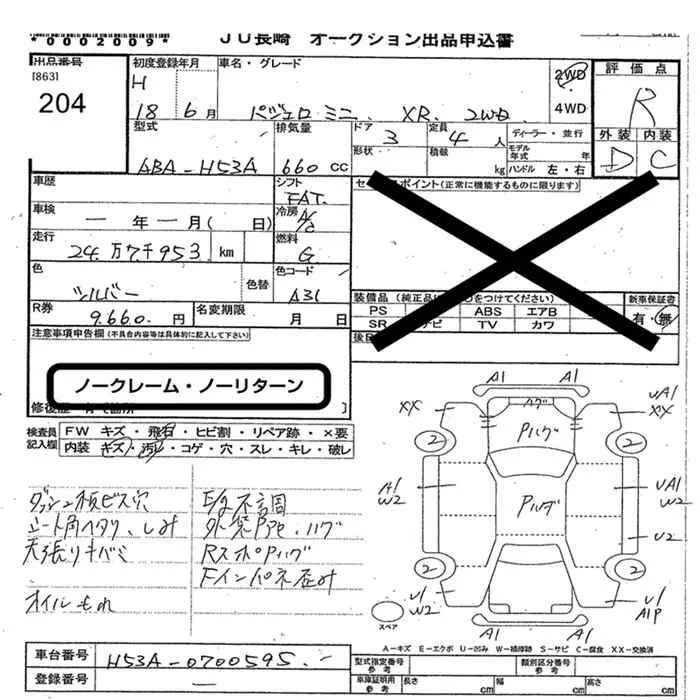 *0002009*
JU長崎 オークション出品申込書
出品番号
[863]
204
初度登録年月
H
18 6月
車名・グレード
パジェロ ミニ XR 2WD
2WD
4WD
評価点
R
外装 内装
D C
型式
ABA-H53A
排気量
660 CC
ドア 3
形状
定員 4 人
積載 kg
ディーラー・並行
モデル年式 年
ハンドル 左・右
車歴
シフト
FAT
車検 ー 年 ー 月( 日)
冷房 A/C
走行
24万7千953 km
燃料
G
色
シルバー
色替
色コード
A31
R券
9,660. 円
名変期限
月 日
セールスポイント(正常に機能するものに限ります)
装備品
PS ABS エアB
SR TV カワ
新車保証書
有・無
注意事項申告欄(不具合内容等は具体的に記入して下さい)
ノークレーム・ノーリターン
検査員記入欄
FW キズ・飛石・ヒビ割・リペア跡・×要
内装 キズ・汚れ・コゲ・穴・スレ・キレ・破レ
ダッシュ板ビス穴
シート角ヘタリ、しみ
天張りキバミ
オイルもれ
E/g不調
外装P ハゲ
RスポPハゲ
Fインパネ歪み
A1 A1
XX
アゲ
Pハゲ
UA1
XX
2
2
A1
W2
Pハゲ
UA1
W2
U2
2
2
U1
W2
U1
A1P
A1 A1
スペア
A-キズ E-エクボ U-凹み W-補修跡 S-サビ C-腐食 XX-交換済
車台番号
H53A-0700595
登録番号
ー
型式指定番号
類別区分番号
車庫証明用参考
長さ cm
幅 cm
高さ cm